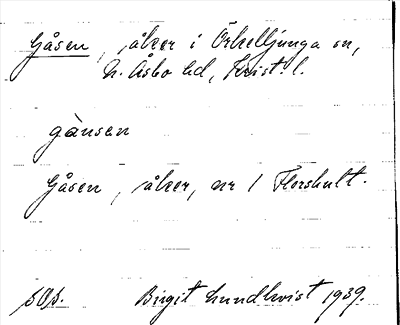 Gåsen, åker i Örkelljunga sn,
N. Åsbo hd, Krist. l.
gànsen
Gåsen, åker, nr 1 Florshult.
Birgit Lundkvist 1939.